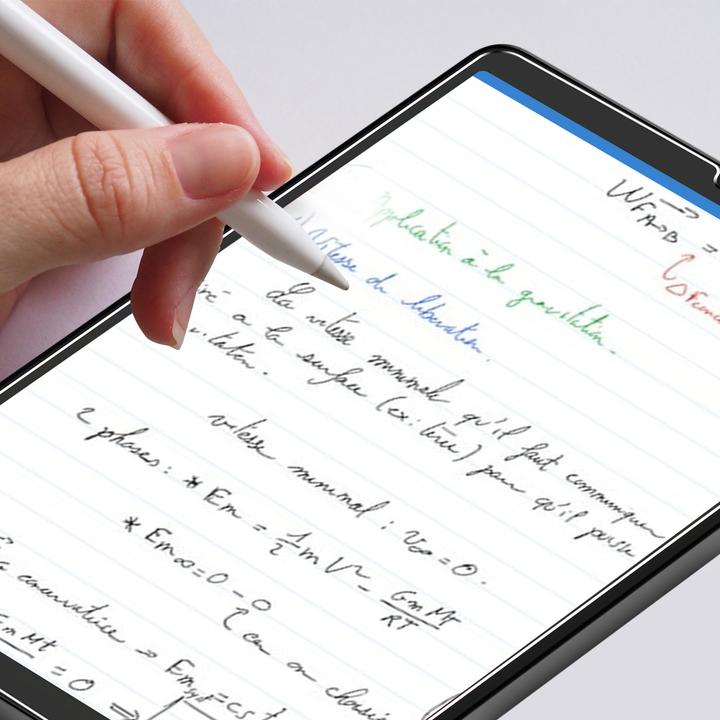 W F A→B =
Application à la gravitation.
1) Vitesse de libération.
La vitesse minimale qu'il faut communiquer
à la surface (ex: terre) pour qu'il puisse
vitesse minimal : v∞ = 0.
2 phases : * Em = 1/2 m V² - GmMT/RT
* Em∞ = 0 - 0
car on choisi
conservative → Em = cst
GmMt = 0 ⇒